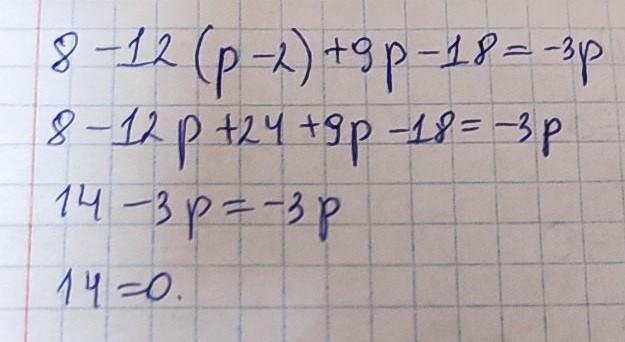 8 - 12 (p - 2) + 9p - 18 = -3p
8 - 12p + 24 + 9p - 18 = -3p
14 - 3p = -3p
14 = 0.